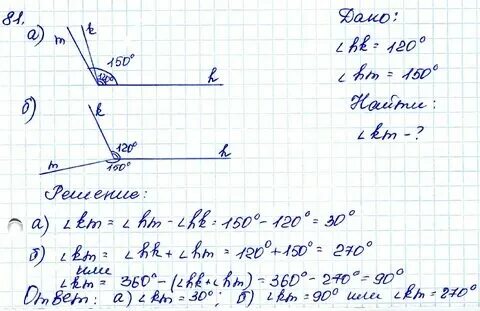 81.
а)
m
k
150°
120°
h
Дано:
∠hk = 120°
∠hm = 150°
Найти:
∠km - ?
б)
k
120°
h
m
150°
Решение:
а) ∠km = ∠hm - ∠hk = 150° - 120° = 30°
б) ∠km = ∠hk + ∠hm = 120° + 150° = 270°
или
∠km = 360° - (∠hk + ∠hm) = 360° - 270° = 90°
Ответ: а) ∠km = 30°; б) ∠km = 90° или ∠km = 270°